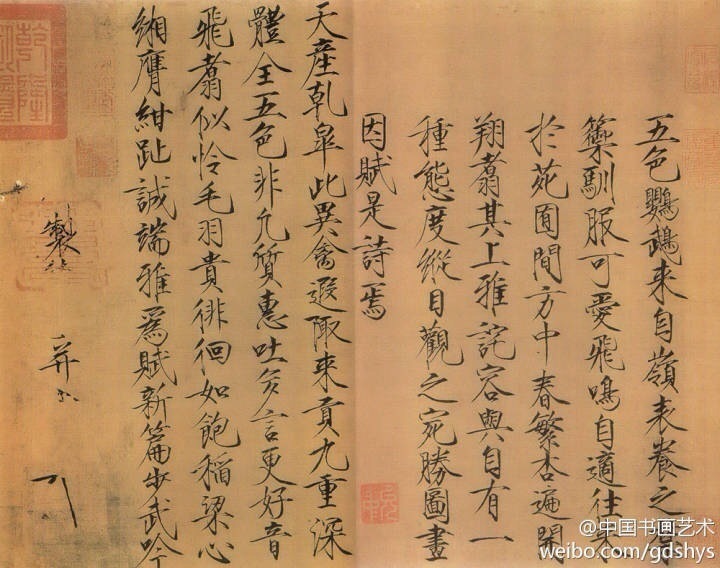 五色鸚鵡來自嶺表養之禁
籞馴服可愛飛鳴自適往來
於苑囿間方中春繁杏遍開
翔翥其上雅詫容與自有一
種態度縱目觀之宛勝圖畫
因賦是詩焉
天産乾皐此異禽遐陬來貢九重深
體全五色非凡質惠吐多言更好音
飛翥似憐毛羽貴徘徊如飽稻粱心
緗膺紺趾誠端雅爲賦新篇步武吟
製
乾隆
@中国书画艺术
weibo.com/gdshys